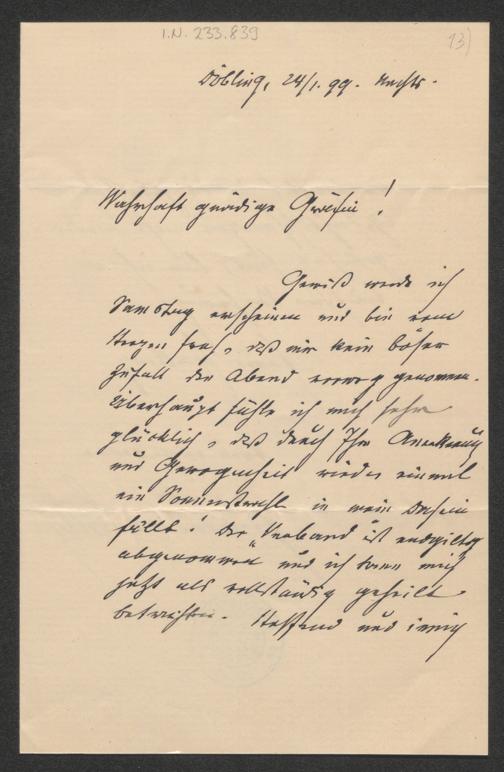 I.N. 233.839
13)
Döbling, 24/1. 99. Nachts.
Wahrhaft gnädige Gräfin!
Gewiß werde ich
Samstag erscheinen und bin vom
Herzen froh, daß mir kein böser
Zufall den Abend vorweg genommen.
Überhaupt fühle ich mich sehr
glücklich, daß durch Ihre
und Gewogenheit wieder einmal
ein Sonnenstrahl in mein Dasein
fällt! Der "Verband" ist endgiltig
abgenommen und ich kann mich
jetzt als vollständig geheilt
betrachten. Hoffend und innig